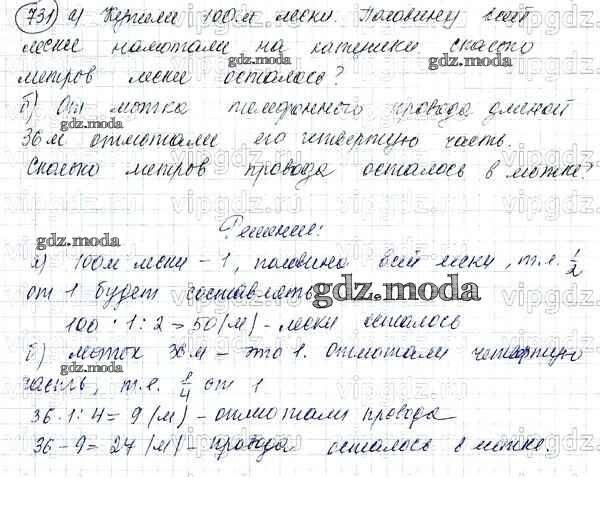 731 а) Купили 100 м лески. Половину всей
лески намотали на катушки сколько
метров лески осталось?
б) От мотка телефонного провода длиной
36 м отмотали его четвертую часть.
Сколько метров провода осталось в мотке?
Решение:
а) 100м лески - 1, половина всей лески, т.е. 1/2
от 1 будет составлять
100 · 1 : 2 = 50 (м) - лески осталось
б) моток 36 м - это 1. Отмотали четвертую
часть, т.е. 1/4 от 1
36 · 1 : 4 = 9 (м) - отмотали провода
36 - 9 = 27 (м) - провода осталось в мотке.
gdz.moda
vipgdz